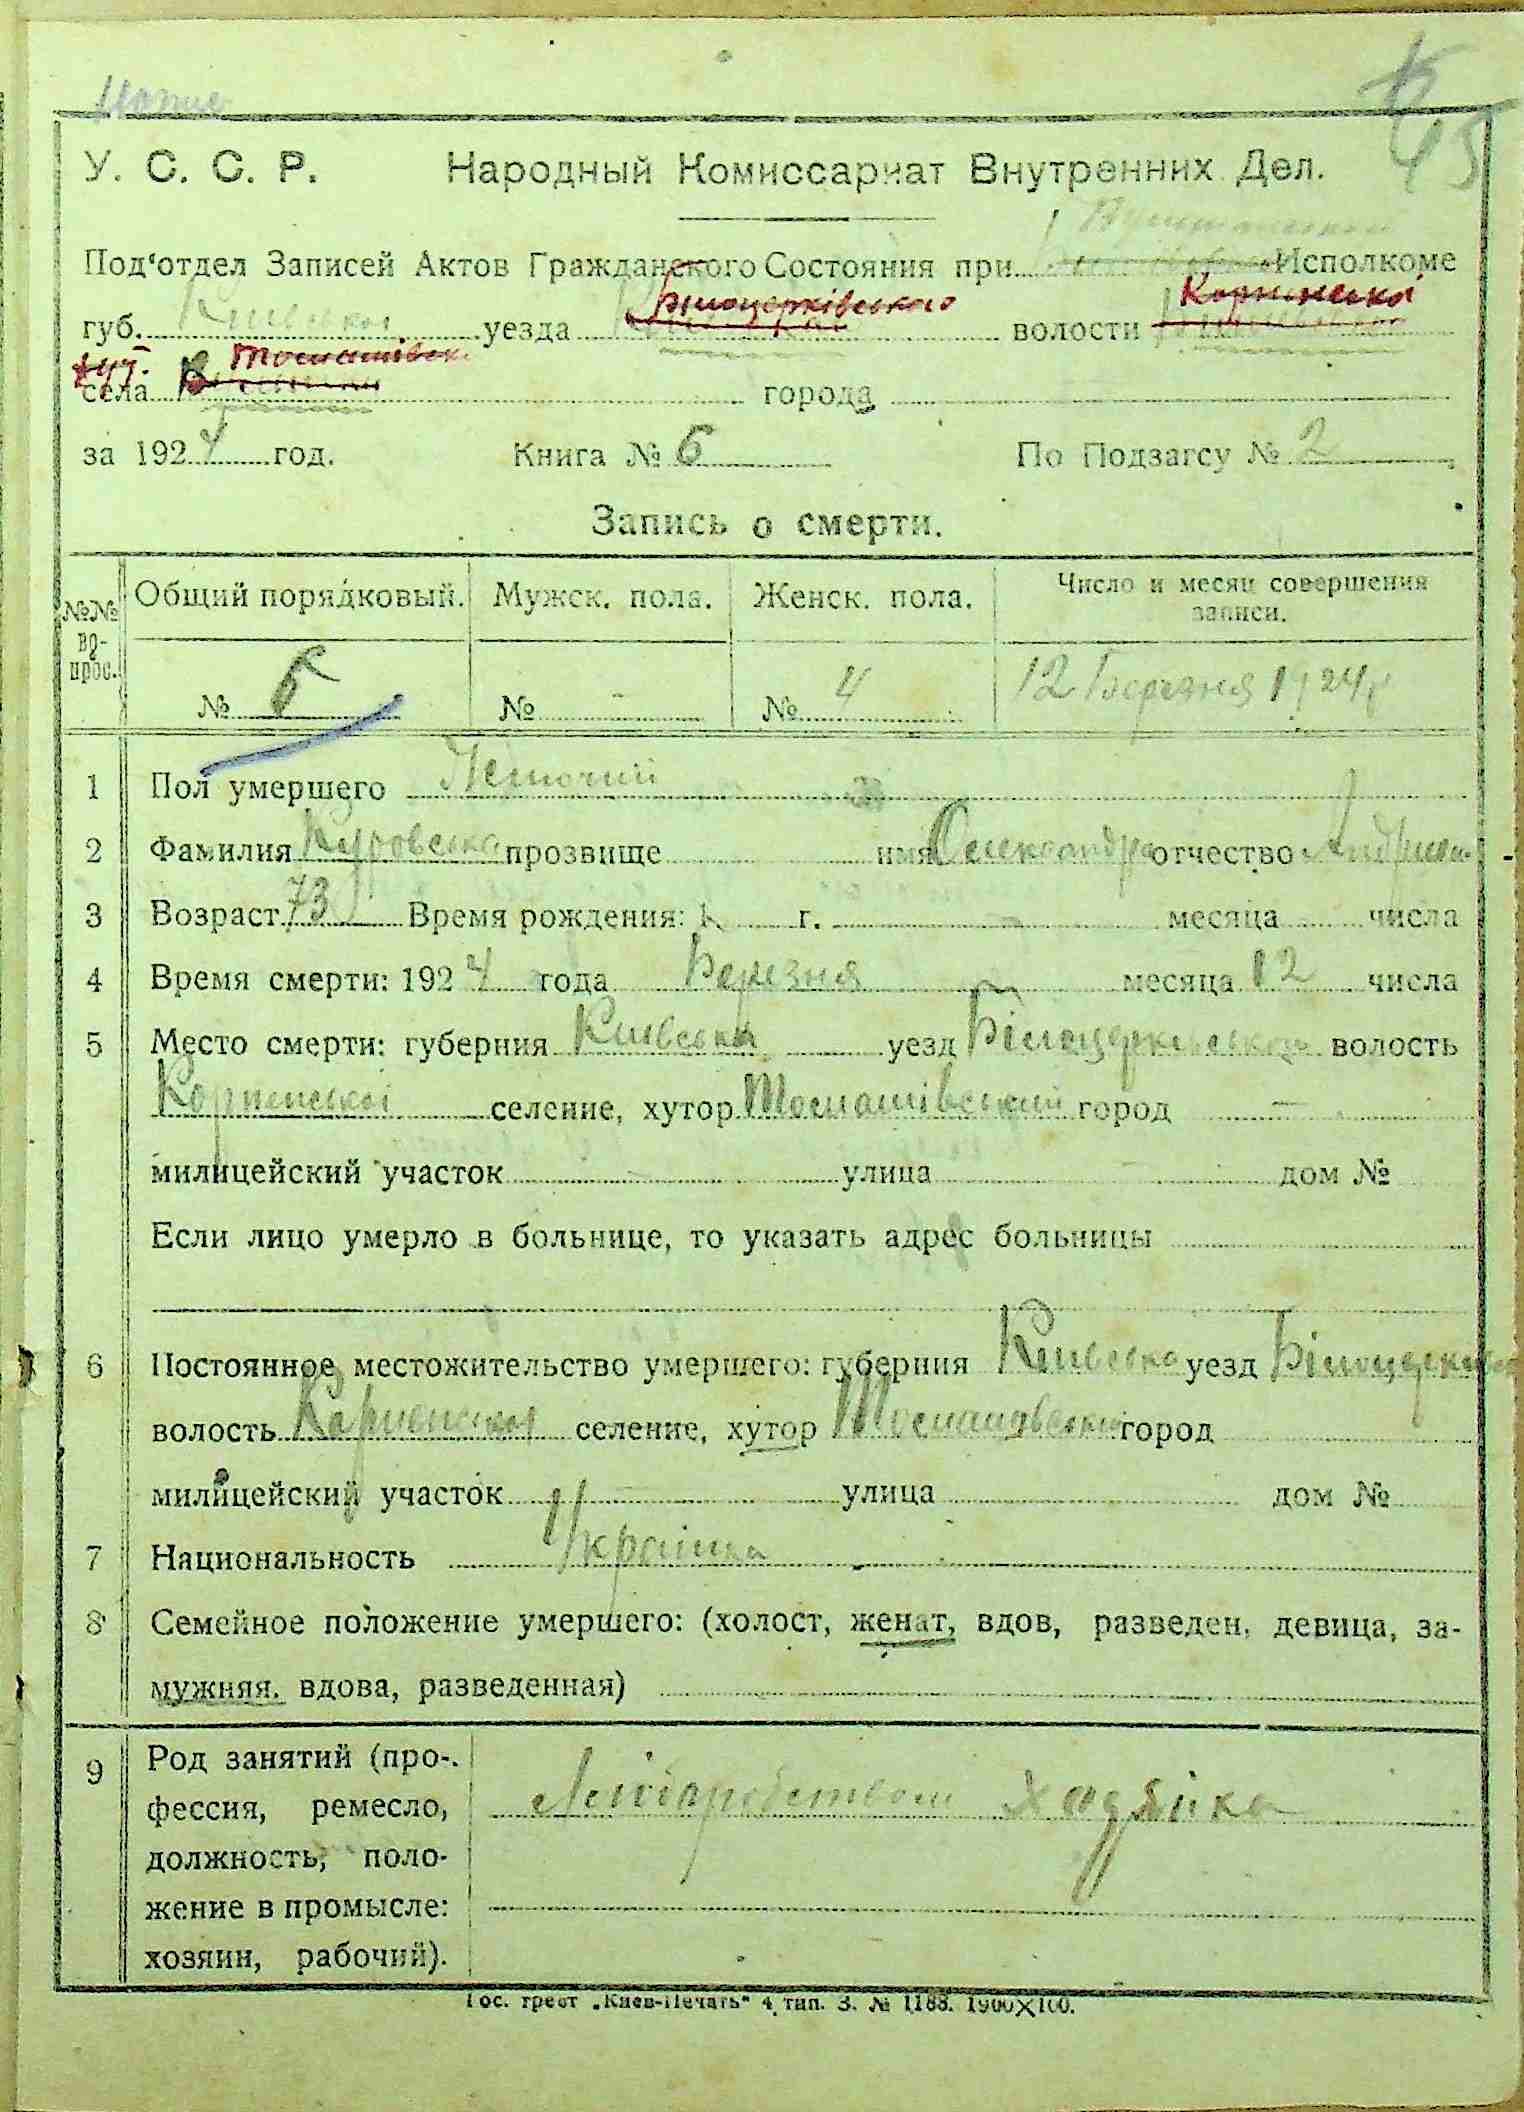 45
У. С. С. Р. Народный Комиссариат Внутренних Дел.
Под‘отдел Записей Актов Гражданского Состояния при Исполкоме
губ. Київської уезда Білоцерківського волости Корнинської
хут. Томашівськ.
села города
за 1924 год. Книга № 6 По Подзагсу № 2
Запись о смерти.
№№ во- прос. Общий порядковый. Мужск. пола. Женск. пола. Число и месяц совершения записи.
№ 5 № - № 4 12 Березня 1924 р
1 Пол умершего Жіночий
2 Фамилия Куровська прозвище имя Олександра отчество Андриєв.
3 Возраст 73 Время рождения: г. месяца числа
4 Время смерти: 1924 года Березня месяца 12 числа
5 Место смерти: губерния Київська уезд Білоцерківської волость
Корнинської селение, хутор Томашівський город —
милицейский участок — улица — дом №
Если лицо умерло в больнице, то указать адрес больницы
6 Постоянное местожительство умершего: губерния Київська уезд Білоцерківськ
волость Корнинської селение, хутор Томашовский город
милицейский участок — улица дом №
7 Национальность Українка
8 Семейное положение умершего: (холост, женат, вдов, разведен, девица, за-
мужняя. вдова, разведенная)
9 Род занятий (про-
фессия, ремесло, Хліборобством хазяйка
должность, поло-
жение в промысле:
хозяин, рабочий).
Гос. трест „Киев-Печать“ 4 тип. З. № 1188. 1900×100.